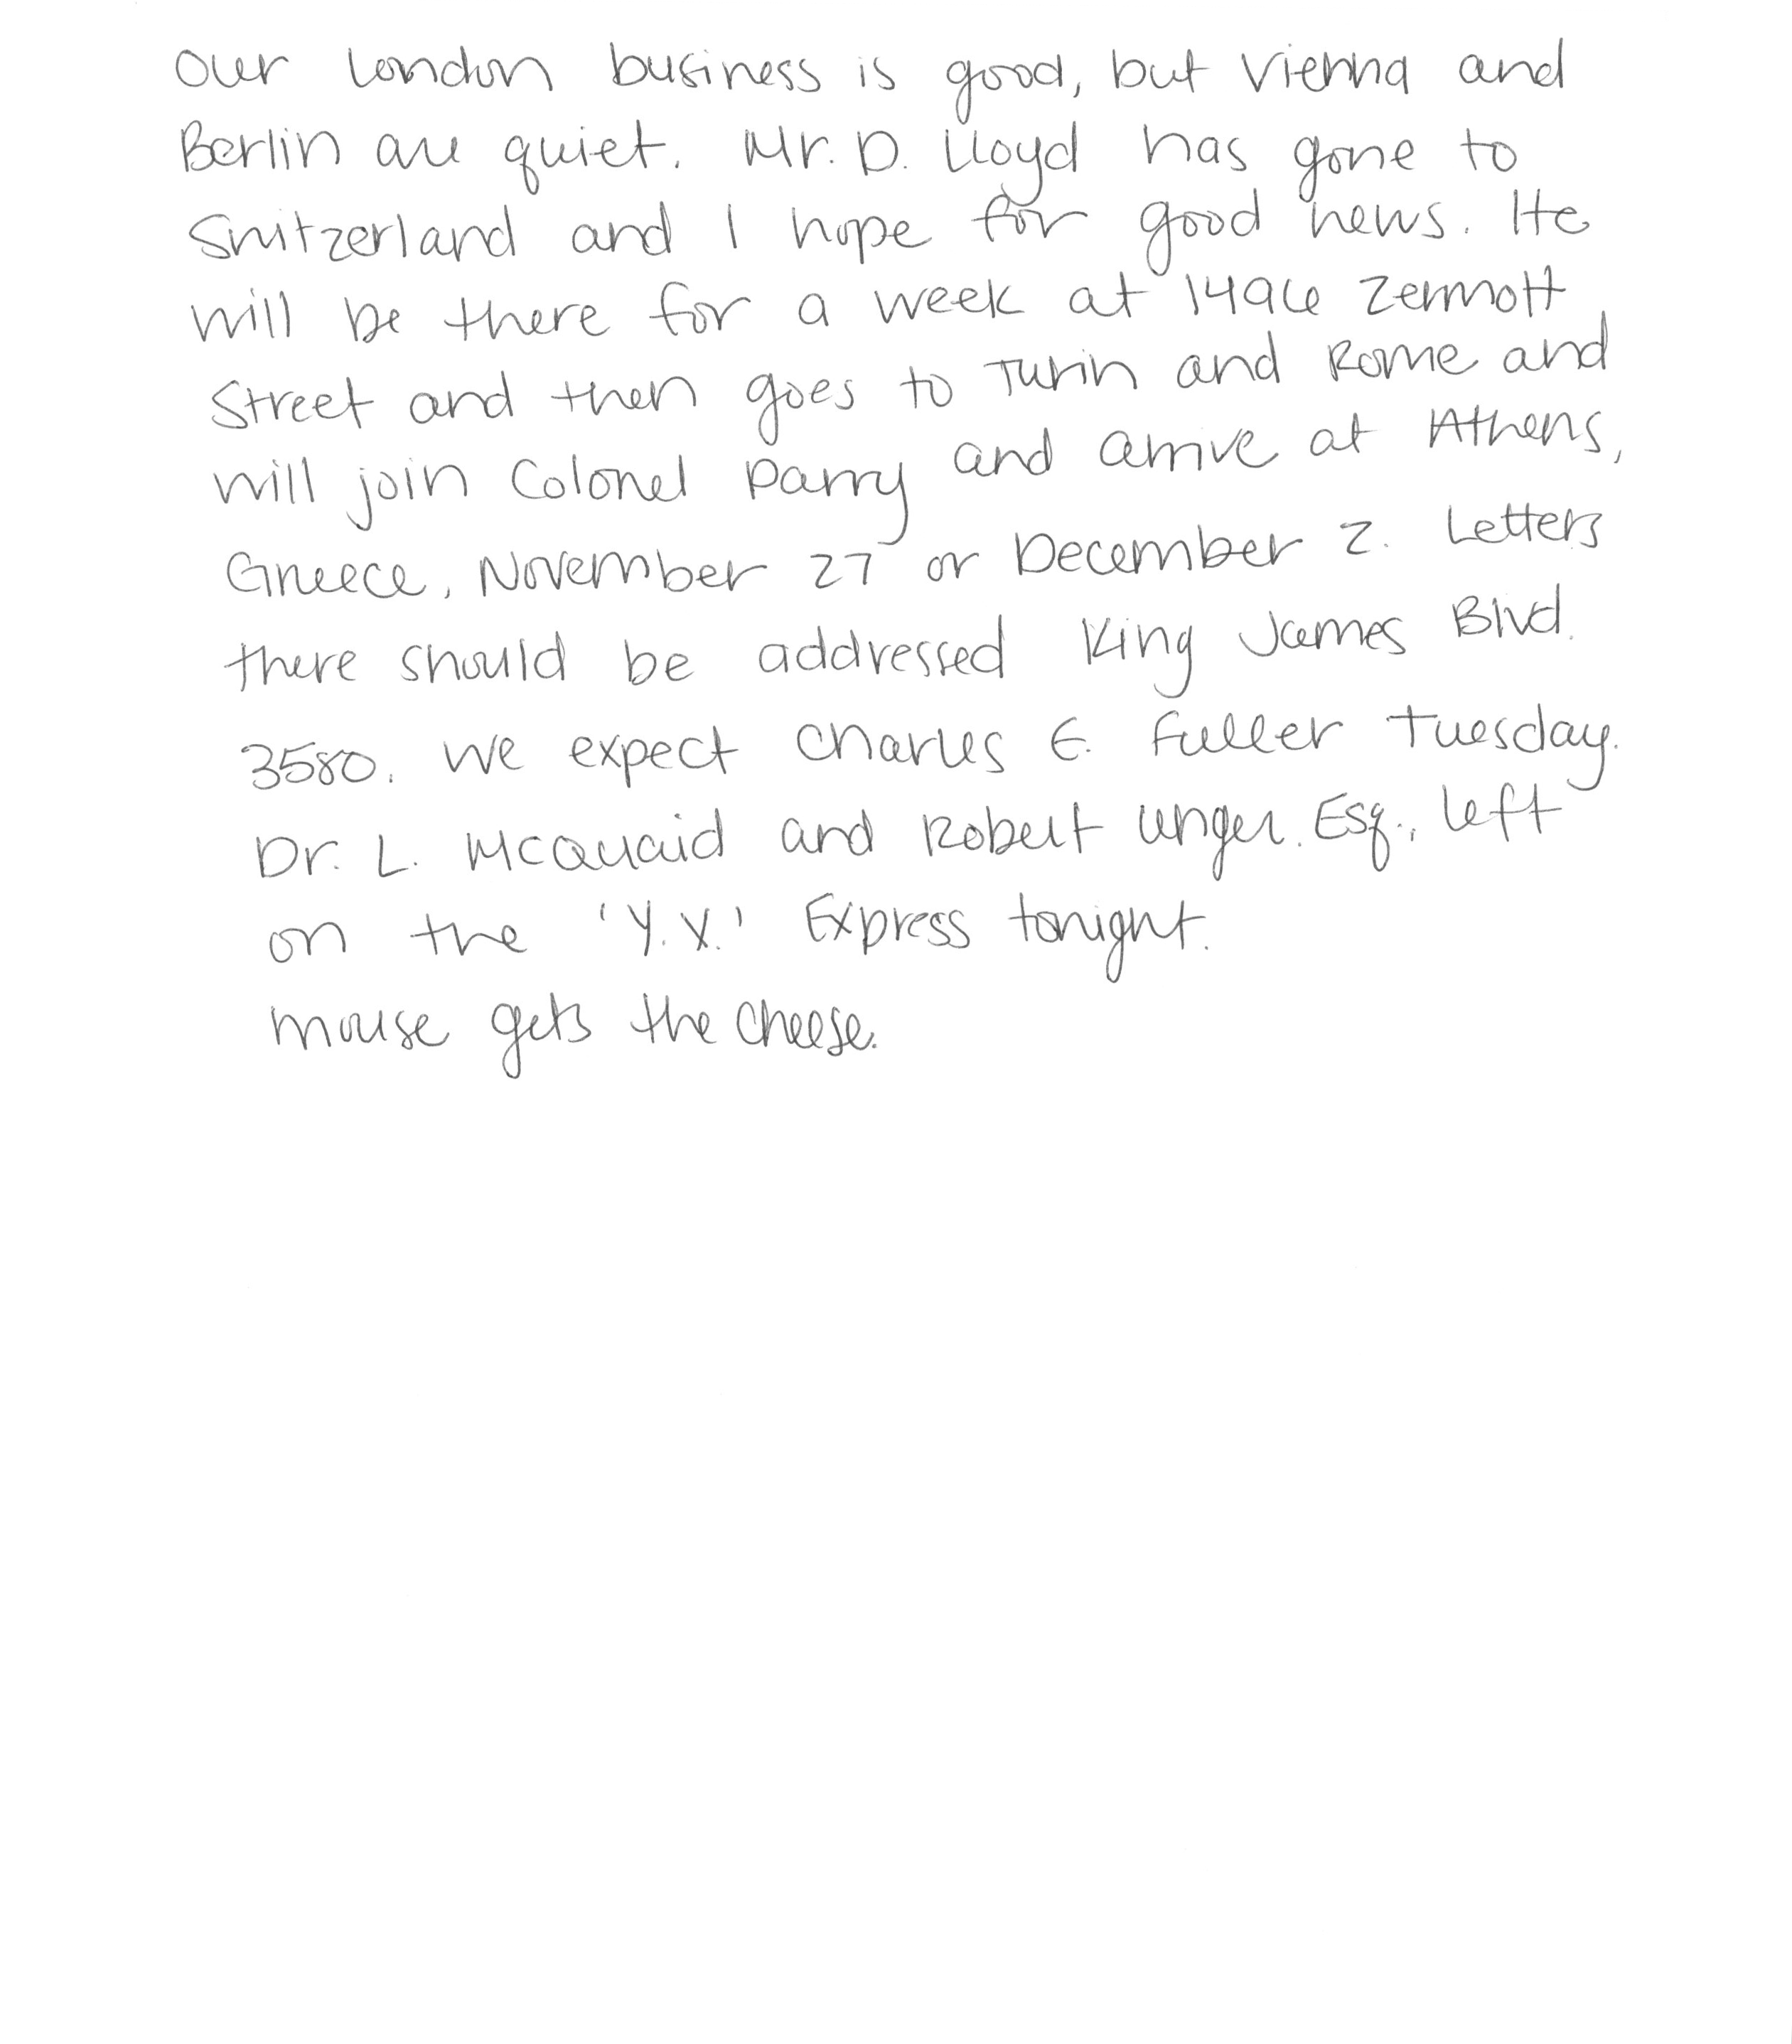 Our London business is good, but Vienna and
Berlin are quiet. Mr. D. Lloyd has gone to
Switzerland and I hope for good news. He
will be there for a week at 1496 Zermott
Street and then goes to Turin and Rome and
will join Colonel Parry and arrive at Athens,
Greece, November 27 or December 2. Letters
there should be addressed King James Blvd.
3580. We expect Charles E. Fuller Tuesday.
Dr. L. McQuaid and Robert Unger. Esq., left
on the 'Y.X.' Express tonight.
mouse gets the cheese.